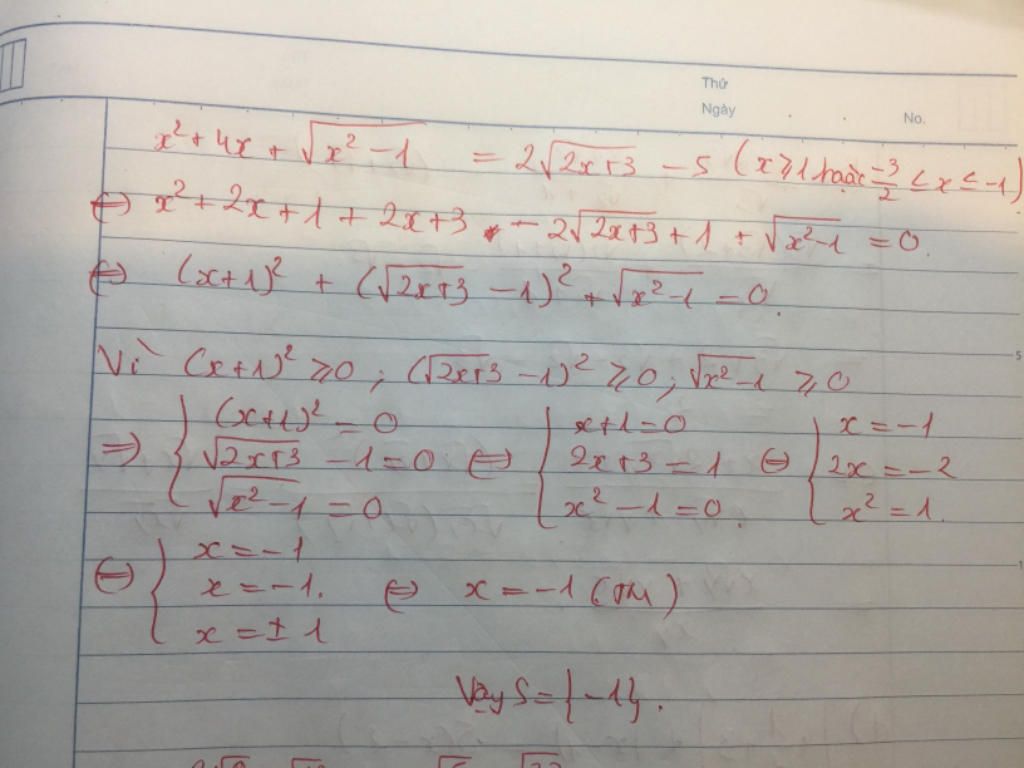 Thứ
Ngày
No.
x² + 4x + √(x² − 1) = 2√(2x+3) − 5 (x ⩾ 1 hoặc −3/2 ≤ x ≤ −1)
⇔ x² + 2x + 1 + 2x + 3 − 2√(2x+3) + 1 + √(x²−1) = 0.
⇔ (x+1)² + (√(2x+3) − 1)² + √(x²−1) = 0.
Vì (x+1)² ⩾ 0 ; (√(2x+3) − 1)² ⩾ 0 ; √(x²−1) ⩾ 0
5
⇒ { (x+1)² = 0 ; √(2x+3) − 1 = 0 ; √(x²−1) = 0 ⇔ { x+1 = 0 ; 2x+3 = 1 ; x² − 1 = 0. ⇔ { x = −1 ; 2x = −2 ; x² = 1.
⇔ { x = −1 ; x = −1. ; x = ± 1 ⇔ x = −1 (TM)
Vậy S = {−1}.